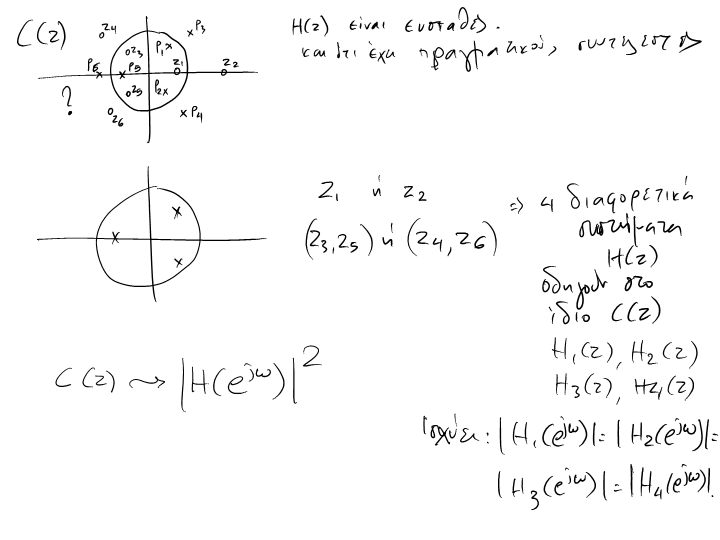 C(z)
z4
P3
z3
P1
P6
P5
z1
z2
z5
P2
?
z6
P4
H(z) είναι ευσταθές.
και ότι έχει πραγματικούς συντελεστές
z1 ή z2
(z3, z5) ή (z4, z6)
⇒ 4 διαφορετικά
συστήματα
H(z)
οδηγούν στο
ίδιο C(z)
H1(z), H2(z)
H3(z), H4(z)
C(z) ⤳ |H(e^{jω})|^2
Ισχύει: |H1(e^{jω})| = |H2(e^{jω})| =
|H3(e^{jω})| = |H4(e^{jω})|.